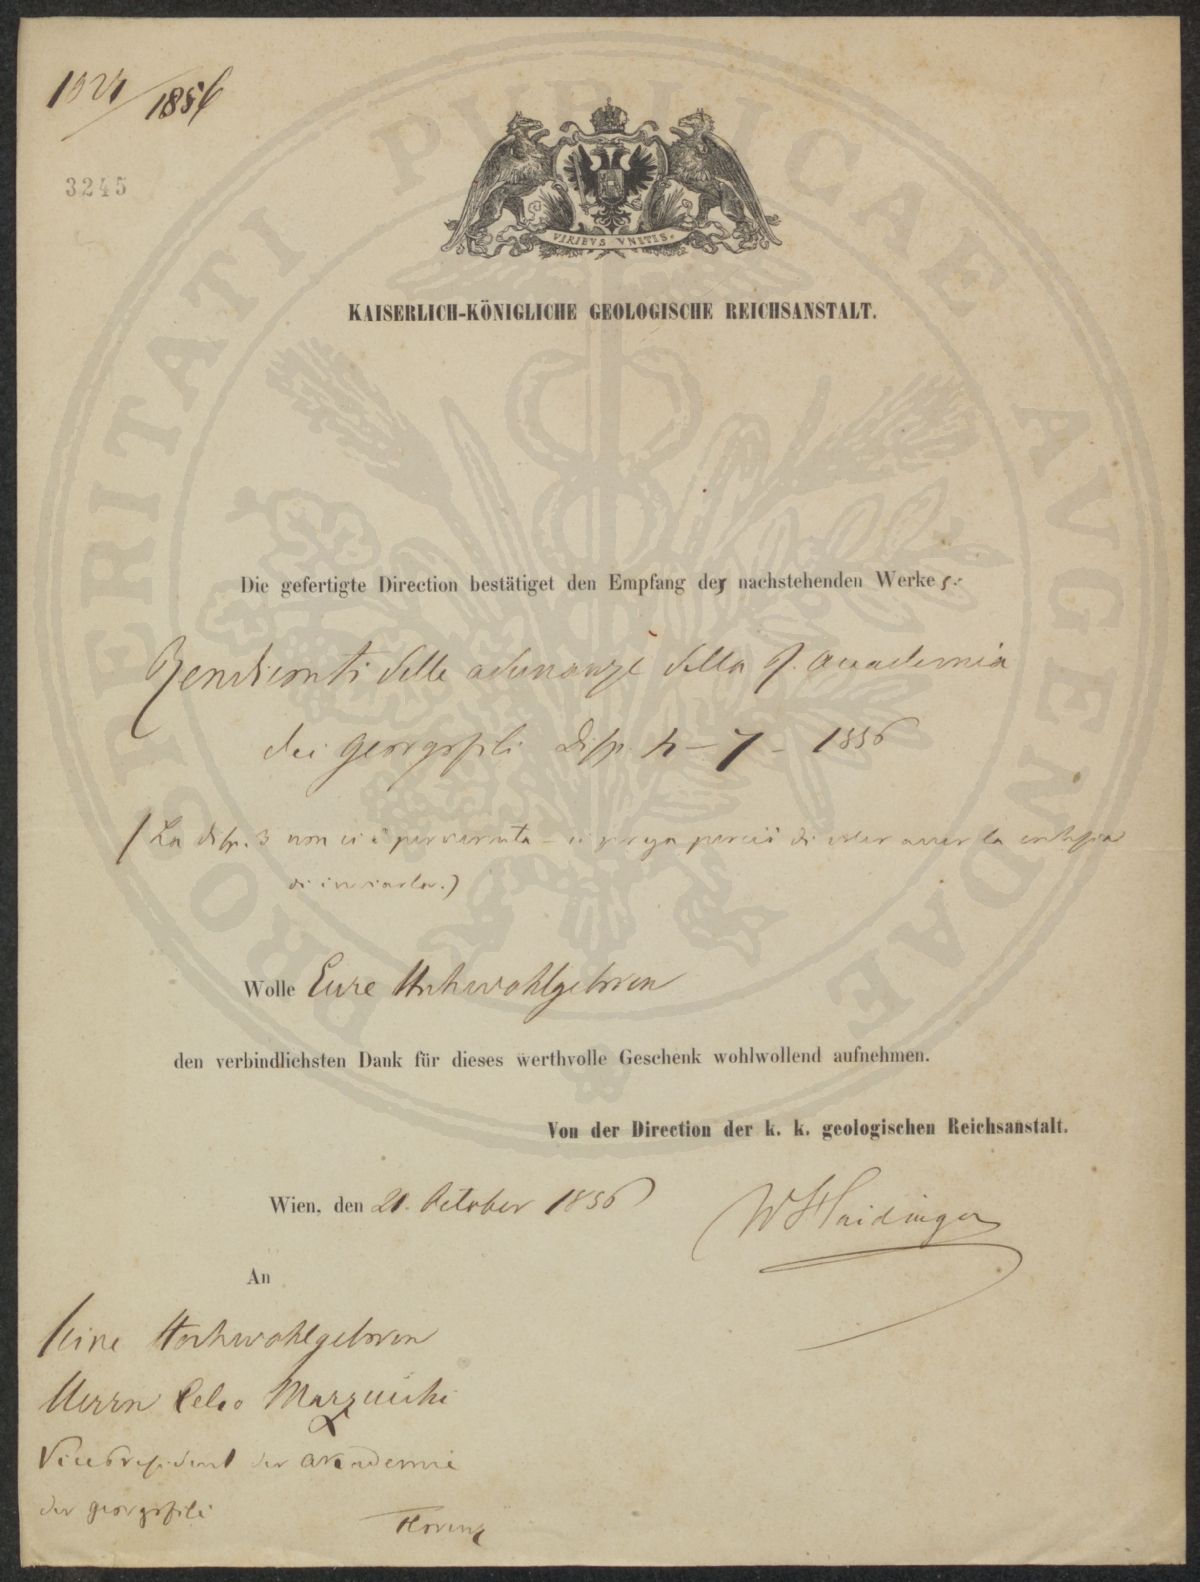 1856
3245
VIRIBVS VNITIS.
KAISERLICH-KÖNIGLICHE GEOLOGISCHE REICHSANSTALT.
Die gefertigte Direction bestätiget den Empfang des nachstehenden Werkes:
Rendiconti delle adunanze della R. Accademia
dei georgofili Disp. 4 – 7 – 1856
(La disp. 3 non ci è pervenuta – si prega perciò di voler aver la cortesia
di inviarla.)
Wolle Eure Hochwohlgeboren
den verbindlichsten Dank für dieses werthvolle Geschenk wohlwollend aufnehmen.
Von der Direction der k. k. geologischen Reichsanstalt.
Wien, den 21. October 1856
W Haidinger
An
Seine Hochwohlgeboren
Herrn Celso Marzucchi
Vicepresident der Accademie
der georgofili
Florenz
PROSPERITATI PUBLICAE AVGENDAE